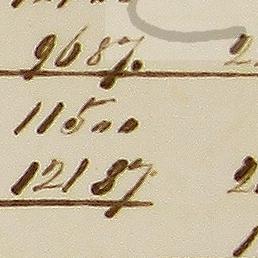 9687. 2
11500
12187 2